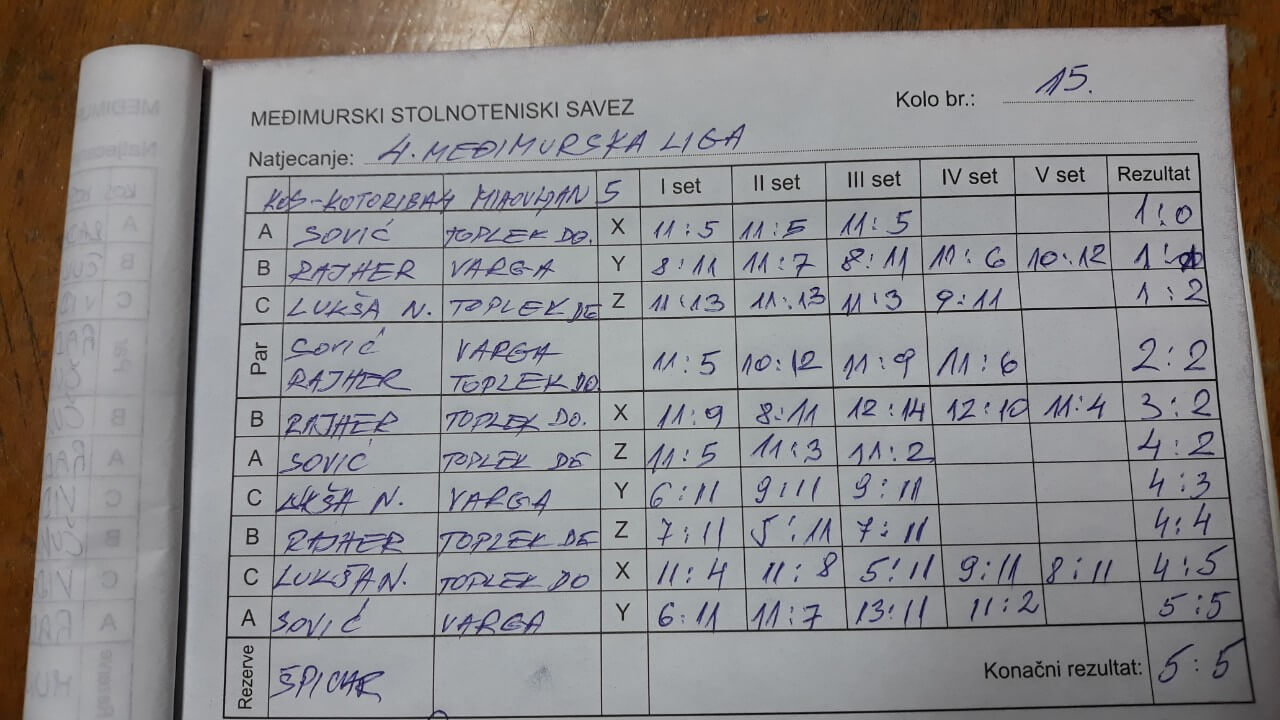 MEĐIMURSKI STOLNOTENISKI SAVEZ
Kolo br.: 15.
Natjecanje: 4. MEĐIMURSKA LIGA
KOS-KOTORIBA 4 5 I set II set III set IV set V set Rezultat
A SOVIĆ TOPLEK DO. X 11:5 11:5 11:5 1:0
B RAJHER VARGA Y 8:11 11:7 8:11 11:6 10:12 1:1
C LUKŠA N. TOPLEK DE Z 11:13 11:13 11:3 9:11 1:2
Par SOVIĆ RAJHER VARGA TOPLEK DO 11:5 10:12 11:9 11:6 2:2
B RAJHER TOPLEK DO. X 11:9 8:11 12:14 12:10 11:4 3:2
A SOVIĆ TOPLEK DE Z 11:5 11:3 11:2 4:2
C LUKŠA N. VARGA Y 6:11 9:11 9:11 4:3
B RAJHER TOPLEK DE Z 7:11 5:11 7:11 4:4
C LUKŠA N. TOPLEK DO X 11:4 11:8 5:11 9:11 8:11 4:5
A SOVIĆ VARGA Y 6:11 11:7 13:11 11:2 5:5
Rezerve ŠPICAR Konačni rezultat: 5:5